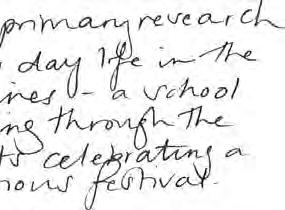 primary research
day life in the
ines - a school
ing through the
ts celebrating a
ious festival.